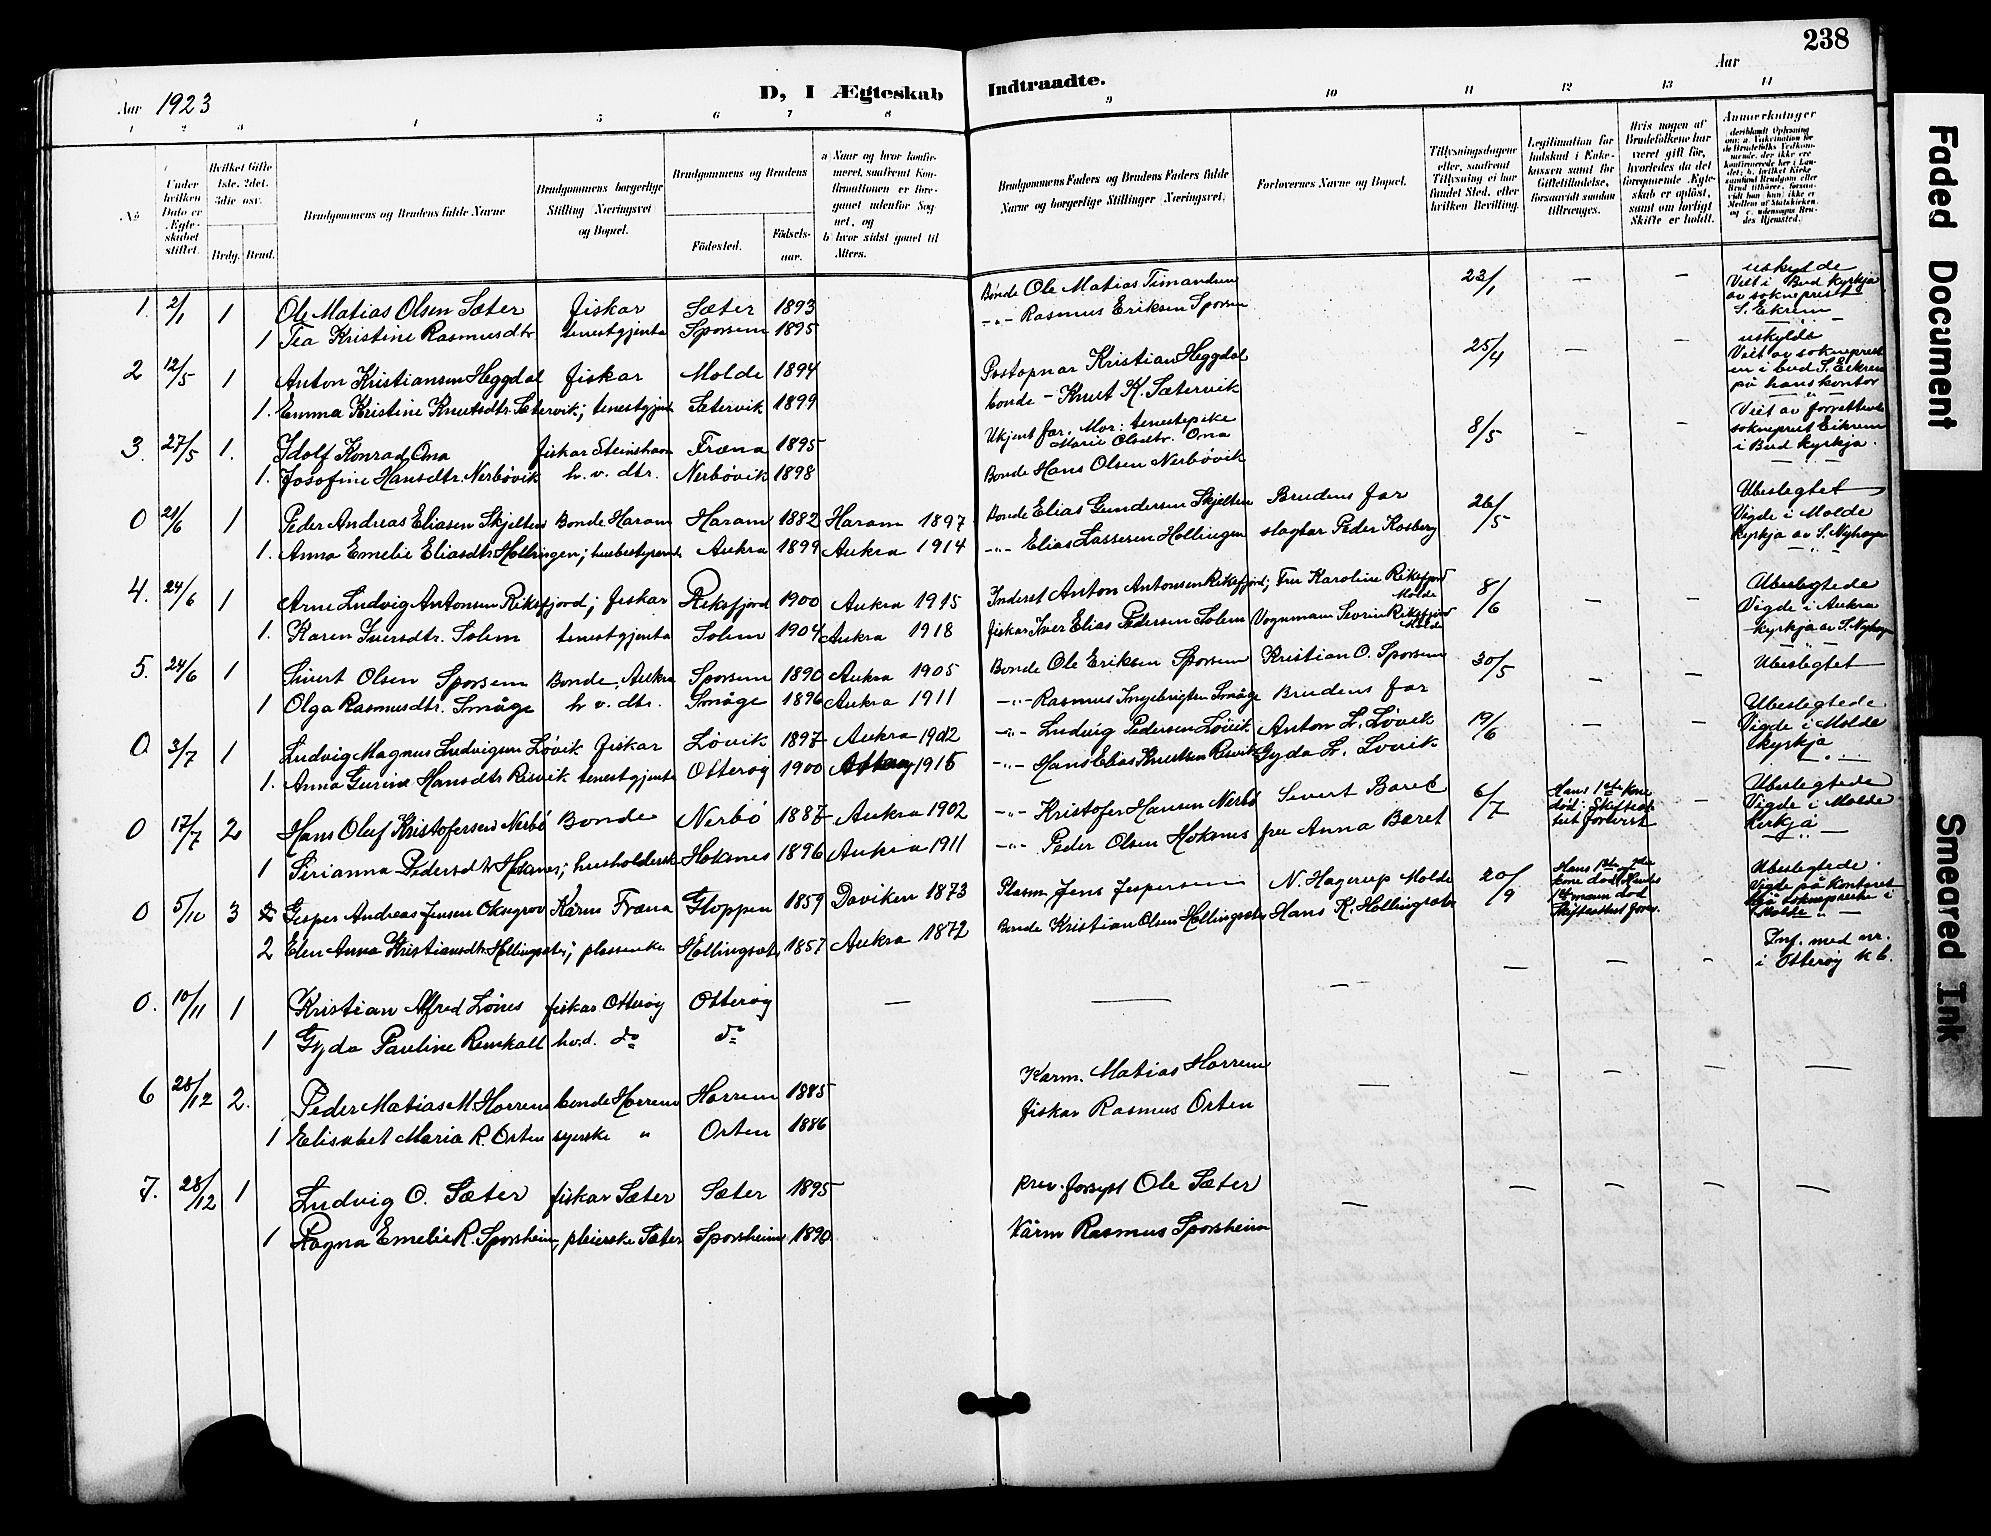 238
Aar 1923
D, I Ægteskab Indtraadte.
Aar
1 2 3 4 5 6 7 8 9 10 11 12 13 14
No
Under hvilken Dato er Ægteskabet stiftet.
Hvilket Gifte 1ste, 2det, 3die osv.
Brdg. Brud.
Brudgommens og Brudens fulde Navne
Brudgommens borgerlige Stilling (Næringsvei) og Bopæl.
Brudgommens og Brudens
Födested.
Födselsaar.
a Naar og hvor konfirmeret, saafremt Konfirmationen er foregaaet udenfor Sognet, og
b hvor sidst gaaet til Alters.
Brudgommens Faders og Brudens Faders fulde Navne og borgerlige Stillinger (Næringsvei).
Forlovernes Navne og Bopæl.
Tillysningsdagene eller, saafremt Tillysning ei har fundet Sted, efter hvilken Bevilling.
Legitimation for Indskud i Enkekassen samt for Giftetilladelse, forsaavidt saadan tiltrænges.
Hvis nogen af Brudefolkene har været gift før, hvorledes da det foregaaende Ægteskab er opløst, samt om lovligt Skifte er holdt.
Anmærkninger
1. 2/1 1 Ole Matias Olsen Sæter fiskar Sæter 1893 Bonde Ole Matias Timandsen 23/1 — — uskylde
1 Tea Kristine Rasmusdtr. tenestgjenta Sporsem 1895 -"- Rasmus Eriksen Sporsem Veit i Bud kyrkja av sokneprest S. Eikrem
2 12/5 1 Anton Kristiansen Heggdal fiskar Molde 1894 Postopnar Kristian Heggdal 25/4 — — uskylde
1. Emma Kristine Knutsdtr. Sætervik; tenestgjent Sætervik 1899 bonde - Knut K. Sætervik Veit av sokneprest en i bud S. Eikrem på hans kontor
3. 27/5 1. Idolf Konrad Oma fiskar Steinshavn Fræna 1895 Ukjent far. Mor: tenestepike Marie Olsdtr. Oma 8/5 — — Veit av forrettande sokneprest Eikrem i Bud kyrkja.
1. Josefine Hansdtr. Nerbövik h. v. dtr. Nerbövik 1898 Bonde Hans Olsen Nerbövik
0 21/6 1 Peder Andreas Eliasen Skjelten Bonde Haram Haram 1882 Haram 1897 Bonde Elias Gundersen Skjelten Brudens far 26/5 Ubeslegtet
1. Anna Emelie Eliasdtr. Hollingen; husbestyrend. Aukra 1899 Aukra 1914 -"- Elias Lassesen Hollingen slagtar Peder Rosberg Vigde i Molde kyrkja av S. Nyhagen
4. 24/6 1 Arne Ludvig Antonsen Rikafjord; fiskar Rikafjord 1900 Aukra 1915 Inderst Anton Antonsen Rikafjord; Fru Karoline Rikafjord Molde 8/6 — — Ubeslegtede
1. Karen Iversdtr. Solem tenestgjenta Solem 1904 Aukra 1918 fiskar Iver Elias Pedersen Solem Vognmann Severin Rikafjord Molde Vigde i Aukra kyrkja av S. Nyhagen
5. 24/6 1 Sivert Olsen Sporsem Bonde, Aukra Sporsem 1890 Aukra 1905 Bonde Ole Eriksen Sporsem Kristian O. Sporsem 30/5 — — Ubeslegtet
1 Olga Rasmusdtr. Småge h. v. dtr. Småge 1896 Aukra 1911 -"- Rasmus Ingebrigtsen Småge Brudens far
0 3/7 1 Ludvig Magnus Ludvigsen Lövik fiskar Lövik 1897 Aukra 1912 -"- Ludvig Pedersen Lövik Anton L. Lövik 19/6 — — Ubeslegtede
1. Anna Gurine Hansdtr. Risvik tenestgjenta Otteröy 1900 1915 -"- Hans Elias Knutsen Risvik Gyda L. Lövik Vigde i Molde kyrkja
0 17/7 2 Hans Oluf Kristofersen Nerbö Bonde Nerbö 1887 Aukra 1902 -"- Kristofer Hansen Nerbö Severt Baret 6/7 Hans 1ste kone död: Skifteattest forevist — Ubeslegtede
1 Serianna Pedersdtr. Hoksnes; husholdersk. Hoksnes 1896 Aukra 1911 -"- Peder Olsen Hoksnes fru Anna Baret Vigde i Molde kirkja
0 5/10 3 Jesper Andreas Jensen Oksegrov Kårm. Fræna Gloppen 1859 Daviken 1873 Plasm. Jens Jespersen N. Hagerup Molde 20/9 Ubeslegtede.
2 Elen Anna Kristiansdtr. Hollingsæter; plassenke Hollingsæt. 1857 Aukra 1872 Bonde Kristian Olsen Hollingsæter Hans K. Hollingsæter Vigde på kontoret
0. 10/11 1 Kristian Alfred Lönes fiskar Otteröy Otteröy — — — — — — Inf. med nr. i Otteröy kb.
1 Gyda Pauline Renskall h.v.d. do do
6 28/12 2. Peder Matias M. Horrem bonde Horrem Horrem 1885 Karm. Matias Horrem — — — — —
1 Elisabet Maria R. Orten syerske " Orten 1886 fiskar Rasmus Orten
7. 28/12 1 Ludvig O. Sæter fiskar Sæter Sæter 1895 Ole Sæter — — — — —
1 Ragna Emelie R. Sporsheim, pleierske Sæter Sporsheim 1890 Kårm Rasmus Sporsheim
Faded Document
Smeared Ink